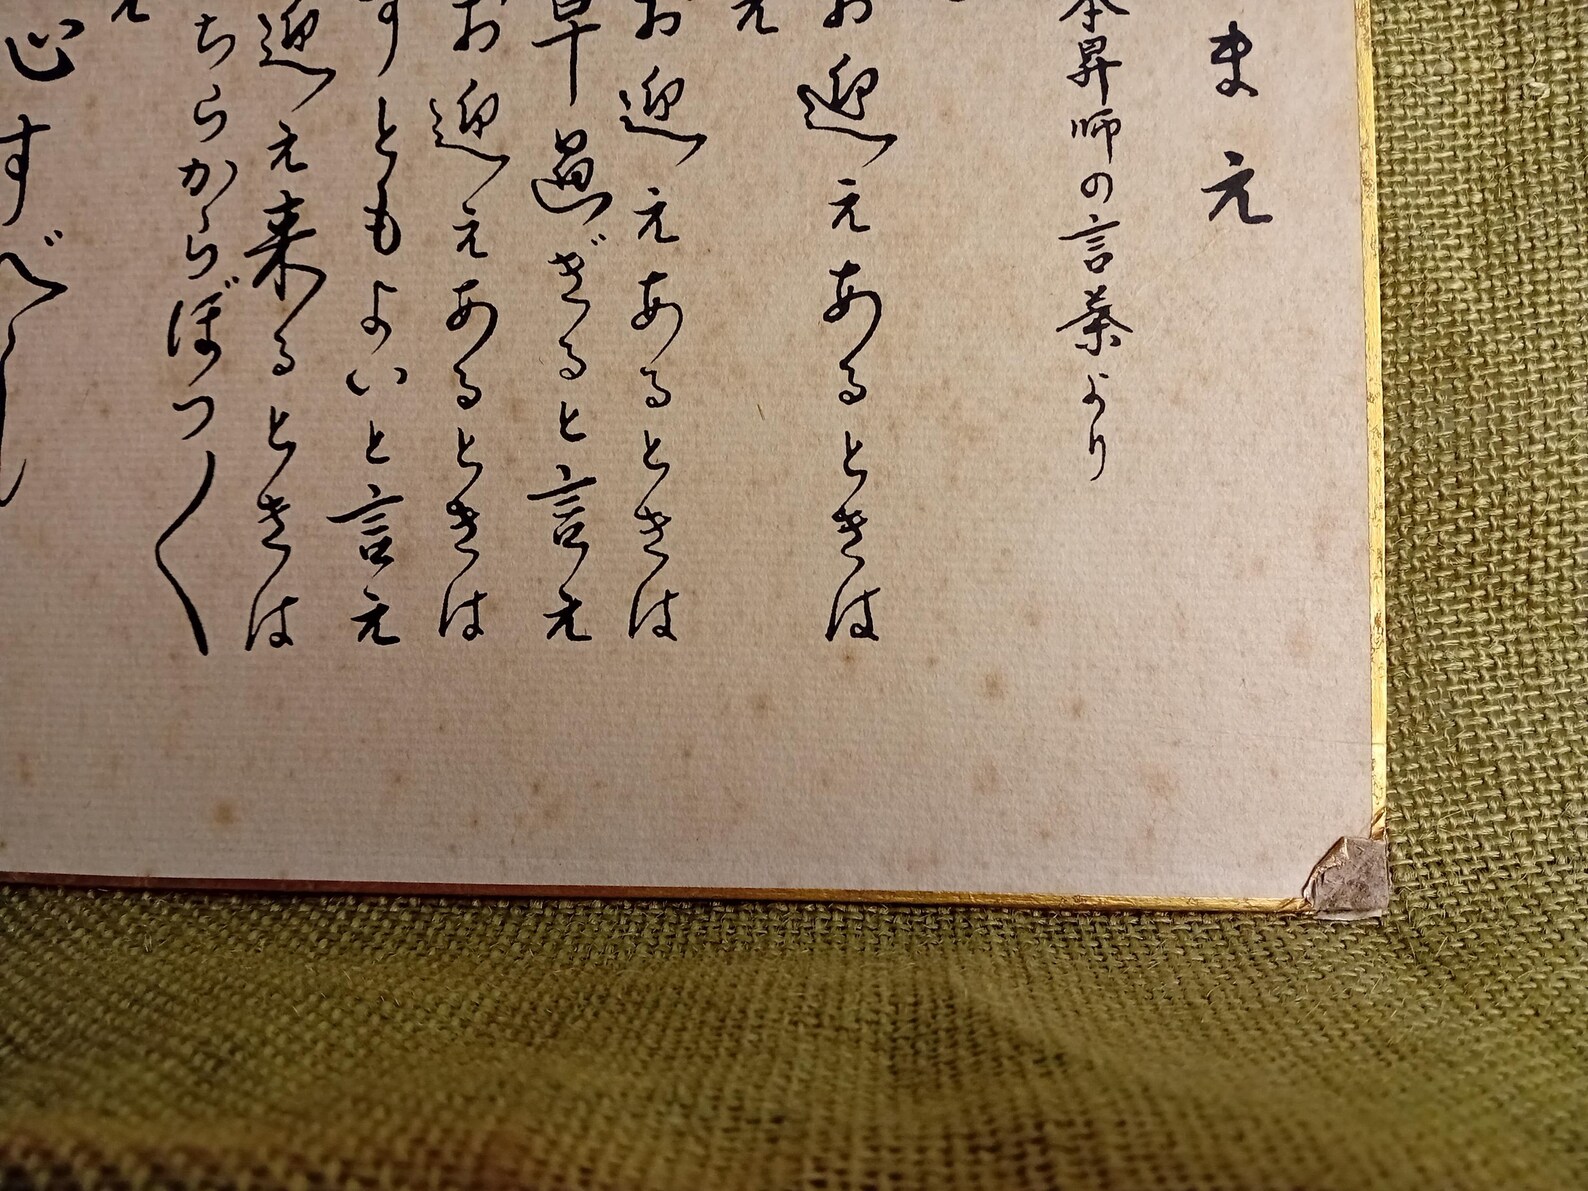 まえ
本昇師の言葉より
お迎えあるときは
え
お迎えあるときは
早過ぎると言え
お迎えあるときは
ずともよいと言え
迎え来るときは
ちらからぼつ〱
え
心すべし